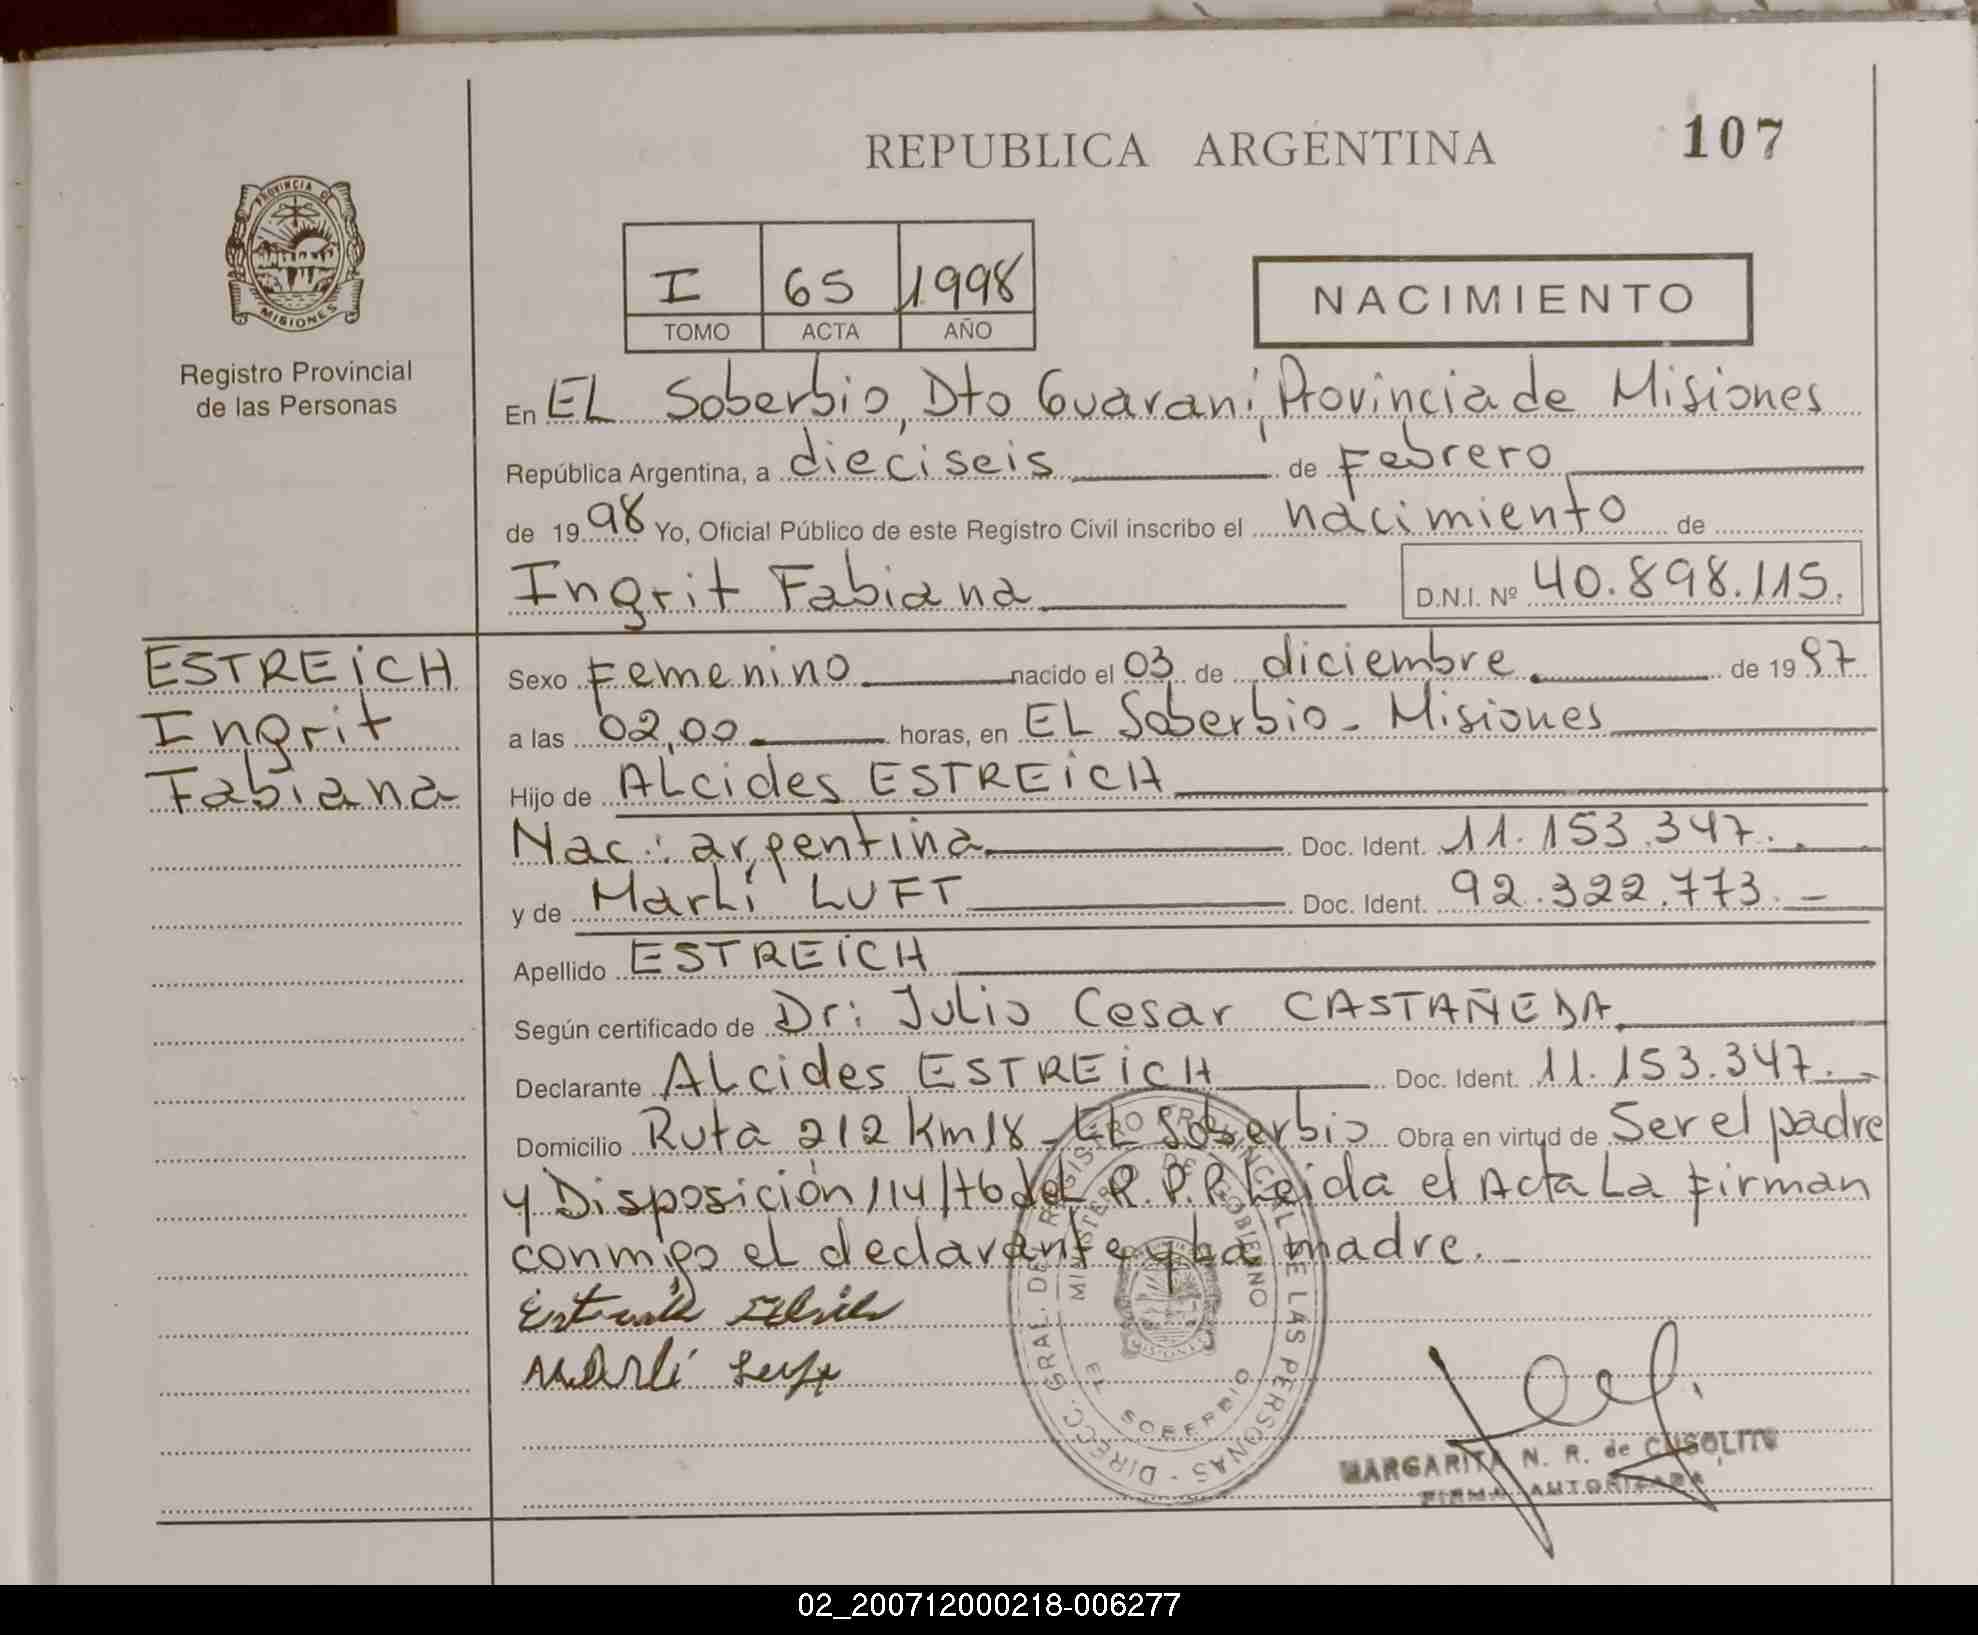 REPUBLICA ARGENTINA
107
PROVINCIA DE
MISIONES
Registro Provincial
de las Personas
I 65 1998
TOMO ACTA AÑO
NACIMIENTO
En EL Soberbio, Dto Guaraní, Provincia de Misiones
República Argentina, a dieciseis de Febrero
de 1998 Yo, Oficial Público de este Registro Civil inscribo el nacimiento de
Ingrit Fabiana D.N.I. Nº 40.898.115.
ESTREICH
Ingrit
Fabiana
Sexo Femenino nacido el 03 de diciembre de 1997
a las 02,00 horas, en EL Soberbio - Misiones
Hijo de ALcides ESTREICH
Nac.: argentina Doc. Ident. 11.153.347.
y de MarLi LUFT Doc. Ident. 92.322.773.-
Apellido ESTREICH
Según certificado de Dr: Julio Cesar CASTAÑEDA
Declarante ALcides ESTREICH Doc. Ident. 11.153.347.-
Domicilio Ruta 212 Km 18 - EL Soberbio Obra en virtud de Ser el padre
y Disposición 114/76 del R.P.P. Leida el Acta La firman
conmigo el declarante y La madre.-
Marli Luft
DIRECC. GRAL. DEL REGISTRO PROVINCIAL DE LAS PERSONAS
MINISTERIO DE GOBIERNO
EL SOBERBIO
MARGARITA N. R. de CUSOLITO
FIRMA AUTORIZADA
02_200712000218-006277